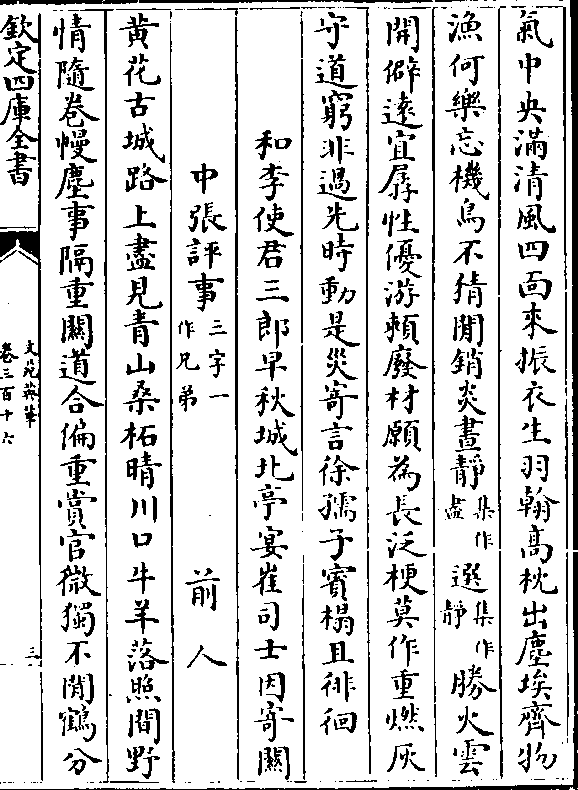 氣中央滿清風四面來振衣生羽翰高枕出塵埃齊物
漁何樂忘機鳥不猜閒銷炎晝靜集作盡選集作靜勝火雲
開僻遠宜孱性優游頼廢材願為長泛梗莫作重燃灰
守道窮非過先時動是災寄言徐孺子賓榻且徘徊
和李使君三郎早秋城北亭宴崔司士因寄關
中張評事三字一作兄弟 前人
黄花古城路上盡見青山桑柘晴川口牛羊落照間野
情隨卷幔塵事隔重關道合偏重賞官微獨不閒鶴分
欽定四庫全書
文苑英華
卷三百十六
三